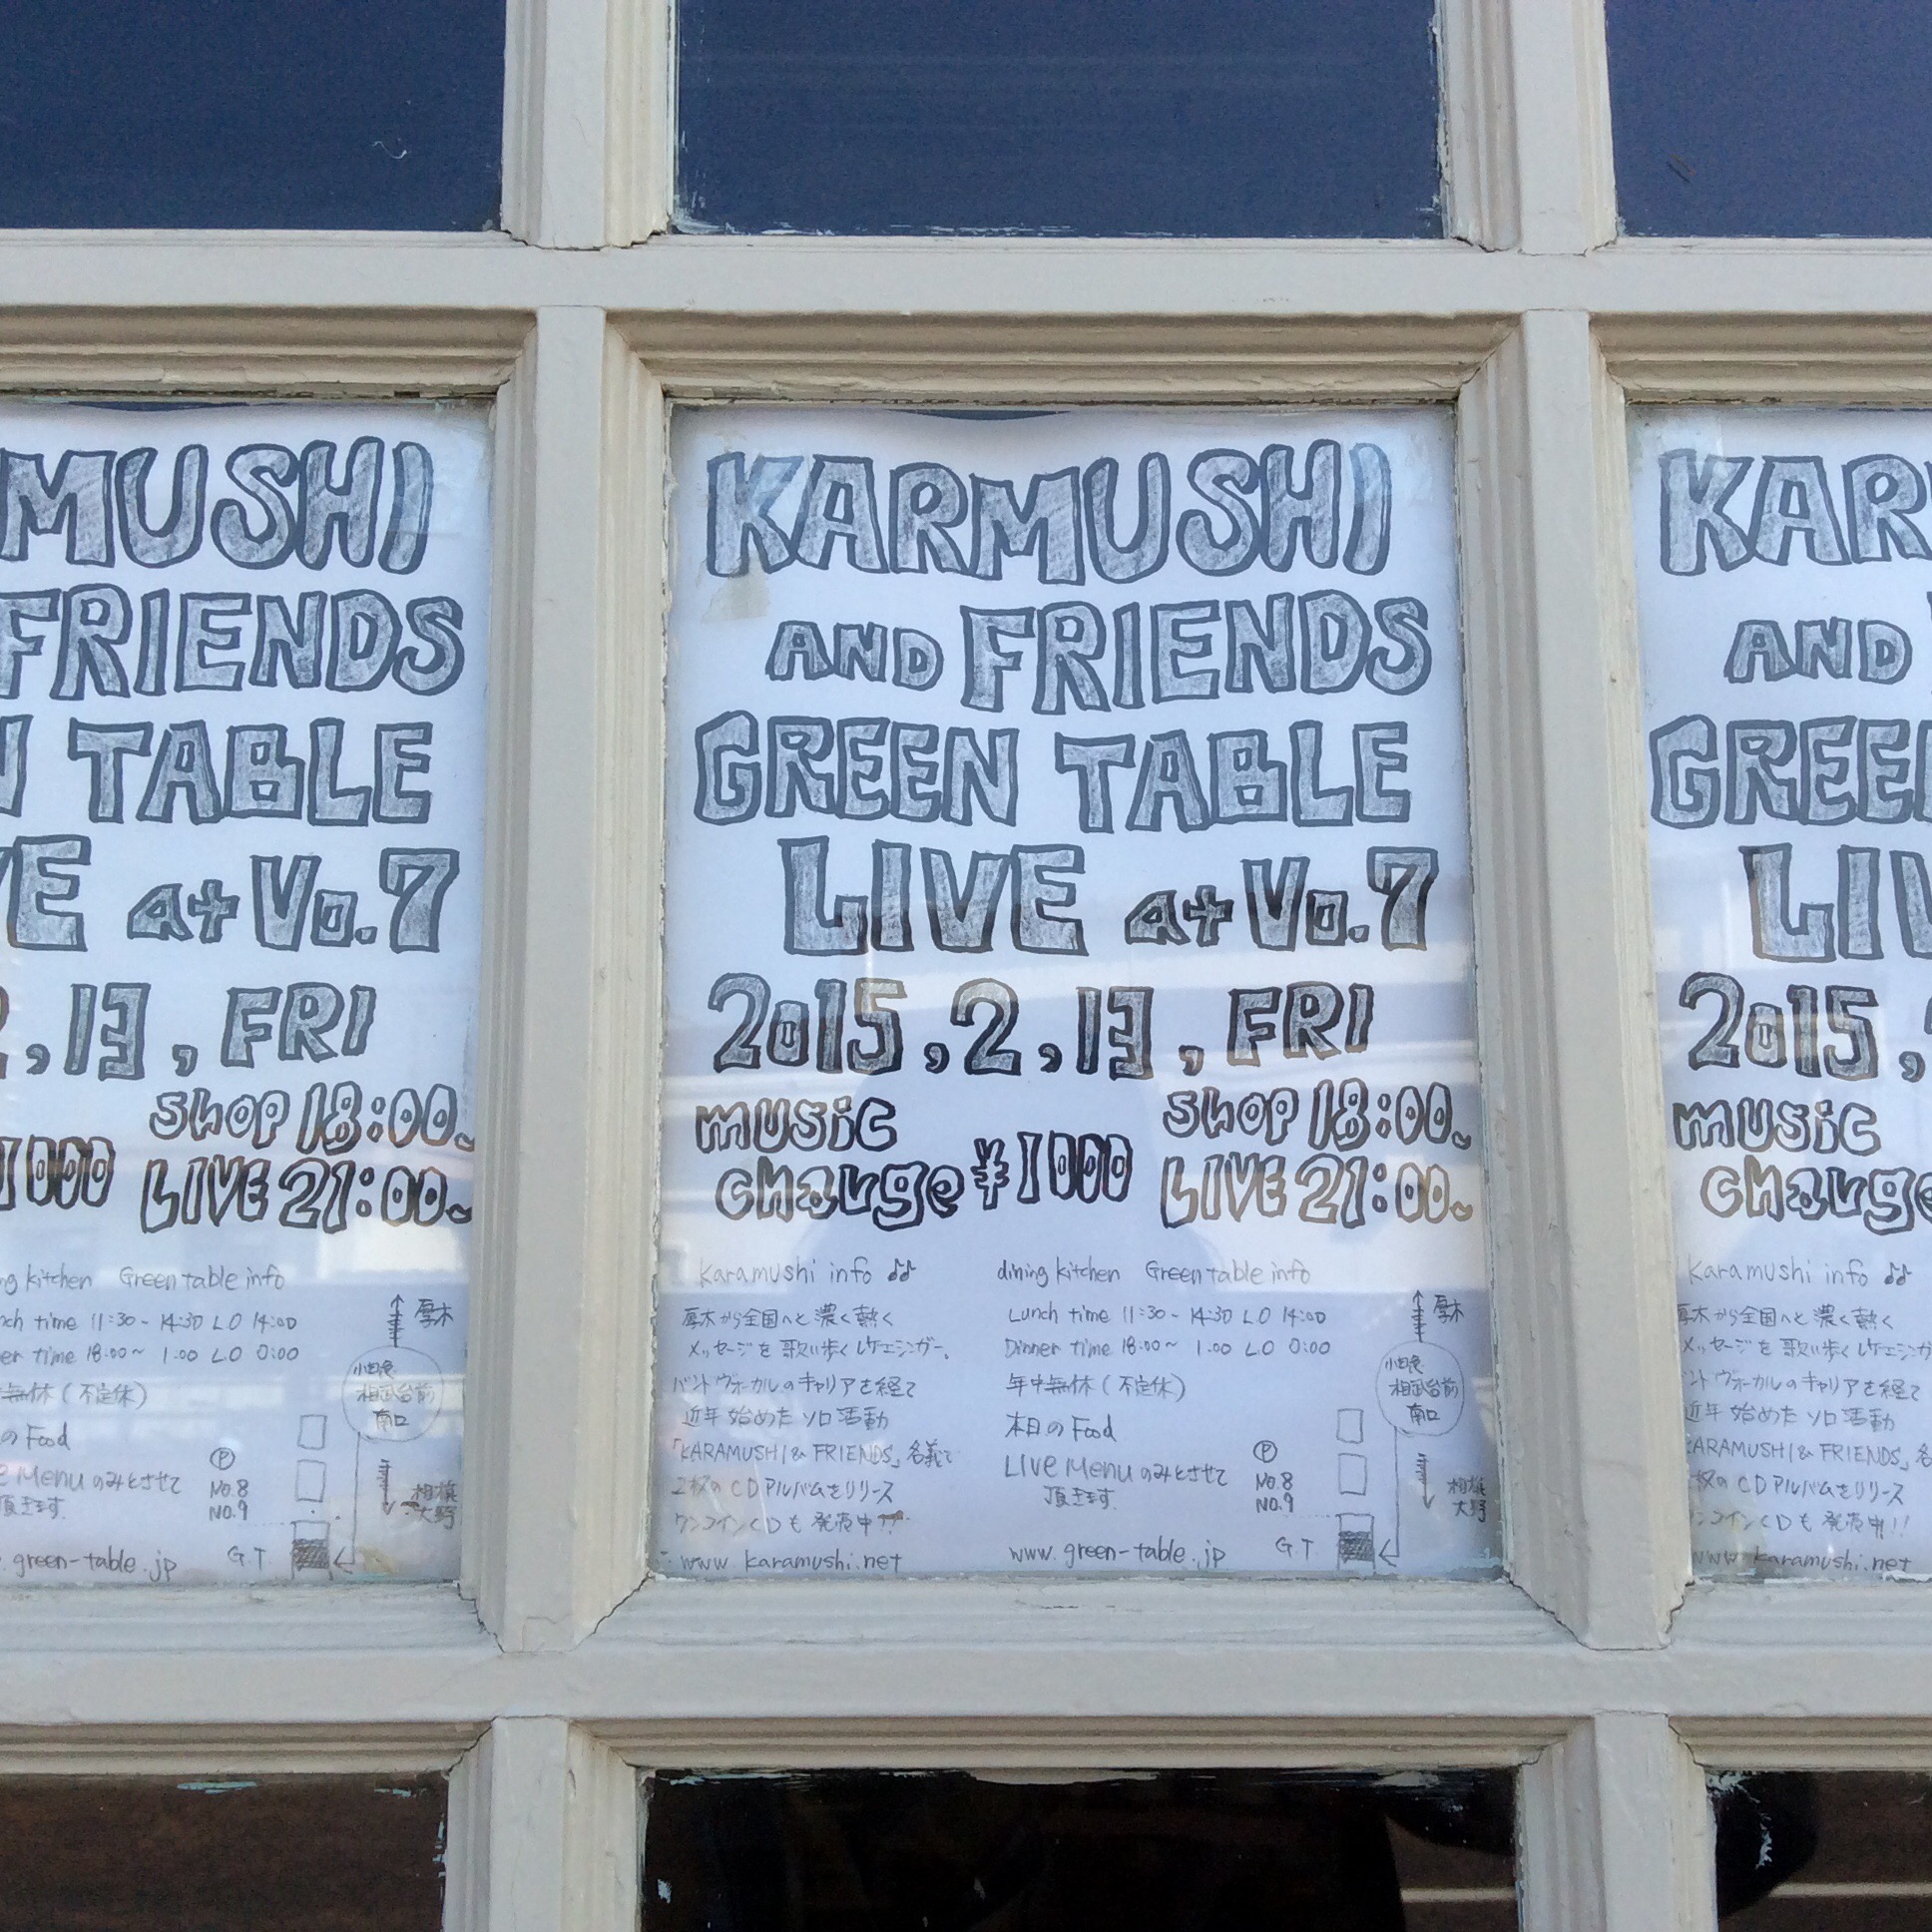 KARMUSHI
AND FRIENDS
GREEN TABLE
LIVE at Vo.7
2015,2,13,FRI
music charge ¥1000
SHOP 18:00~
LIVE 21:00~
Karamushi info ♫
厚木から全国へと濃く熱く
メッセージを歌い歩くレゲエシンガー。
バンドヴォーカルのキャリアを経て
近年始めたソロ活動
「KARAMUSHI & FRIENDS」名義で
2枚のCDアルバムをリリース
ワンコインCDも発売中!!
www.karamushi.net
dining kitchen Green table info
Lunch time 11:30~14:30 LO 14:00
Dinner time 18:00~1:00 LO 0:00
年中無休(不定休)
本日のFood
Live Menuのみとさせて
頂きます。
www.green-table.jp
厚木
小田急
相武台前
南口
相模
大野
P
No.8
No.9
G.T
MUSHI
FRIENDS
N TABLE
VE at Vo.7
2,13,FRI
1000
SHOP 18:00~
LIVE 21:00~
ng kitchen Green table info
nch time 11:30~14:30 LO 14:00
er time 18:00~1:00 LO 0:00
無休(不定休)
のFood
e Menuのみとさせて
頂きます。
.green-table.jp
厚木
小田急
相武台前
南口
相模
大野
P
No.8
No.9
G.T
KAR
AND
GREE
LIV
2015,
music
charge
Karamushi info ♫
厚木から全国へと濃く熱く
メッセージを歌い歩くレゲエシンガ
ンドヴォーカルのキャリアを経て
近年始めたソロ活動
KARAMUSHI & FRIENDS」名
枚のCDアルバムをリリース
ワンコインCDも発売中!!
www.karamushi.net